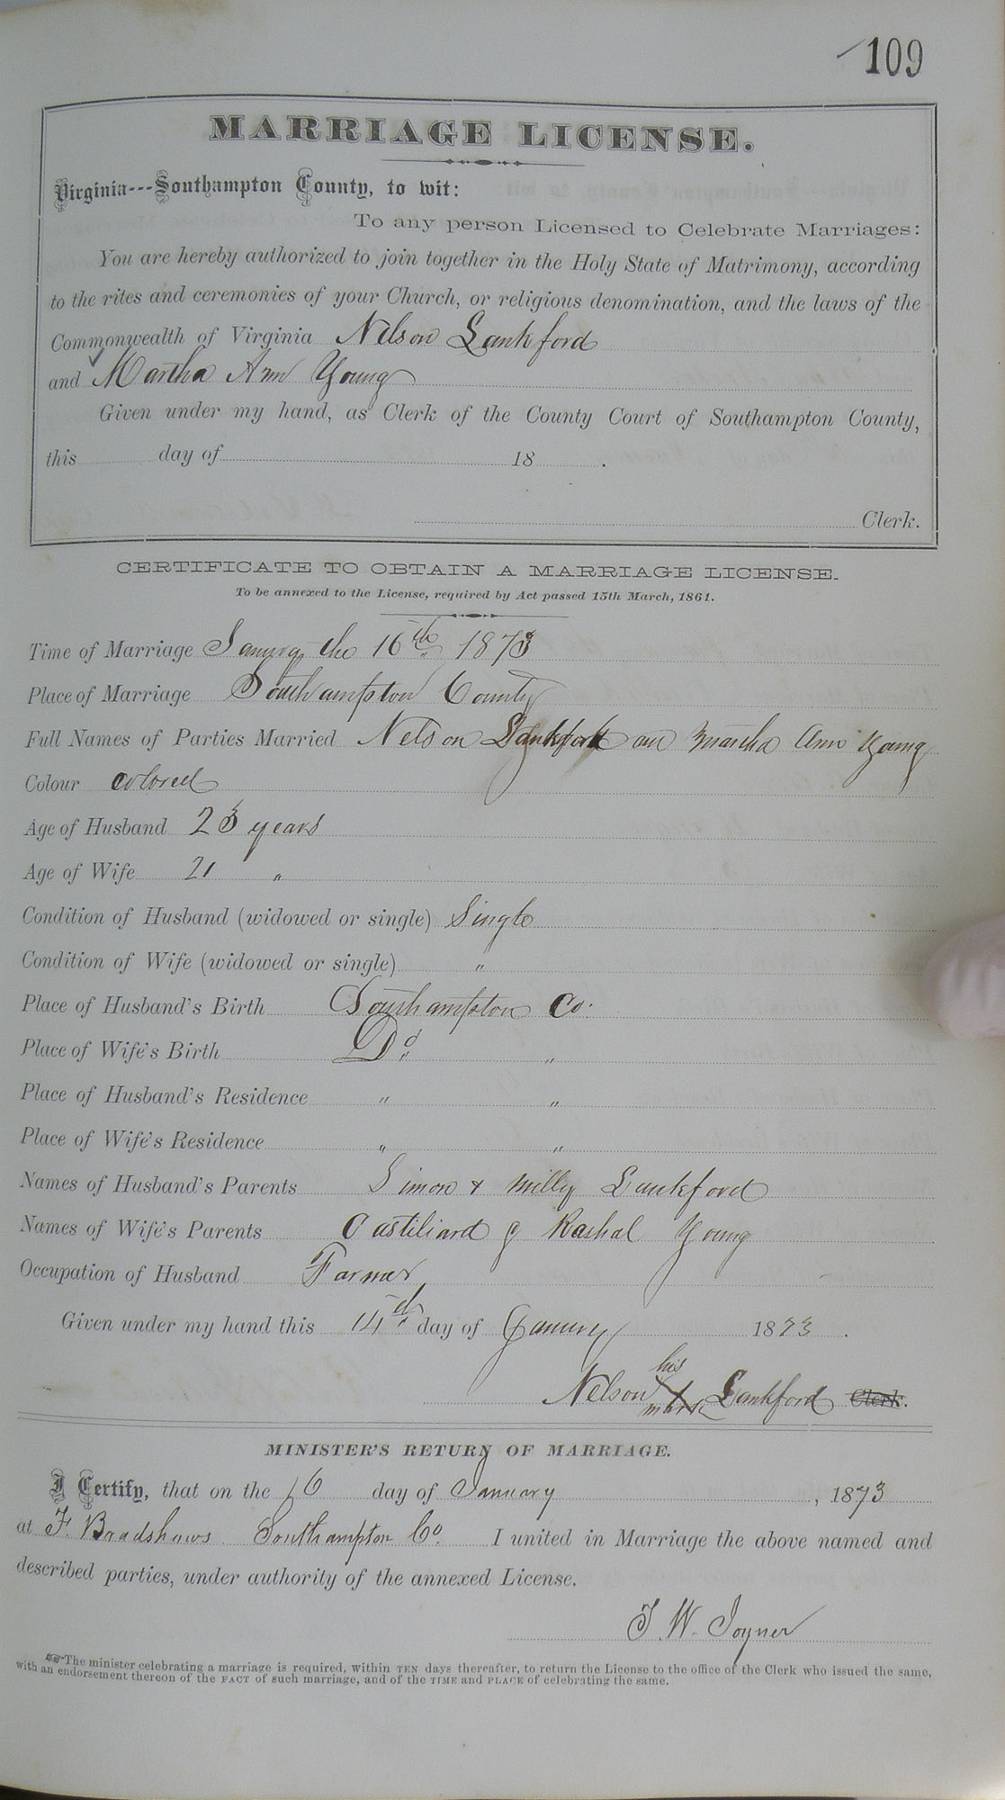 109
MARRIAGE LICENSE.
Virginia---Southampton County, to wit:
To any person Licensed to Celebrate Marriages:
You are hereby authorized to join together in the Holy State of Matrimony, according
to the rites and ceremonies of your Church, or religious denomination, and the laws of the
Commonwealth of Virginia Nelson Lankford
and Martha Ann Young
Given under my hand, as Clerk of the County Court of Southampton County,
this day of 18 .
Clerk.
CERTIFICATE TO OBTAIN A MARRIAGE LICENSE.
To be annexed to the License, required by Act passed 15th March, 1861.
Time of Marriage January the 16th 1873
Place of Marriage Southampton County
Full Names of Parties Married Nelson Lankford an Martha Ann Young
Colour colored
Age of Husband 23 years
Age of Wife 21 "
Condition of Husband (widowed or single) Single
Condition of Wife (widowed or single) "
Place of Husband's Birth Southampton Co.
Place of Wife's Birth Do "
Place of Husband's Residence " "
Place of Wife's Residence " "
Names of Husband's Parents Simon & Milly Lankford
Names of Wife's Parents Castiliard & Rashal Young
Occupation of Husband Farmer
Given under my hand this 14d day of January 1873 .
his
Nelson X Lankford Clerk.
mark
MINISTER'S RETURN OF MARRIAGE.
I Certify, that on the 16 day of January , 1873
at F. Bradshaws Southampton Co. I united in Marriage the above named and
described parties, under authority of the annexed License.
J. W. Joyner
The minister celebrating a marriage is required, within TEN days thereafter, to return the License to the office of the Clerk who issued the same,
with an endorsement thereon of the FACT of such marriage, and of the TIME and PLACE of celebrating the same.